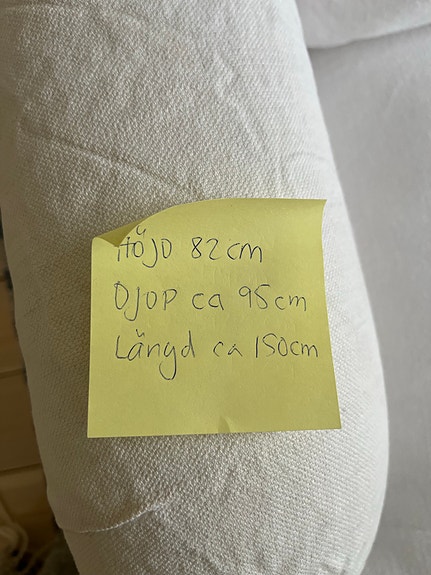 HÖJD 82 cm
DJUP ca 95cm
Längd ca 150cm